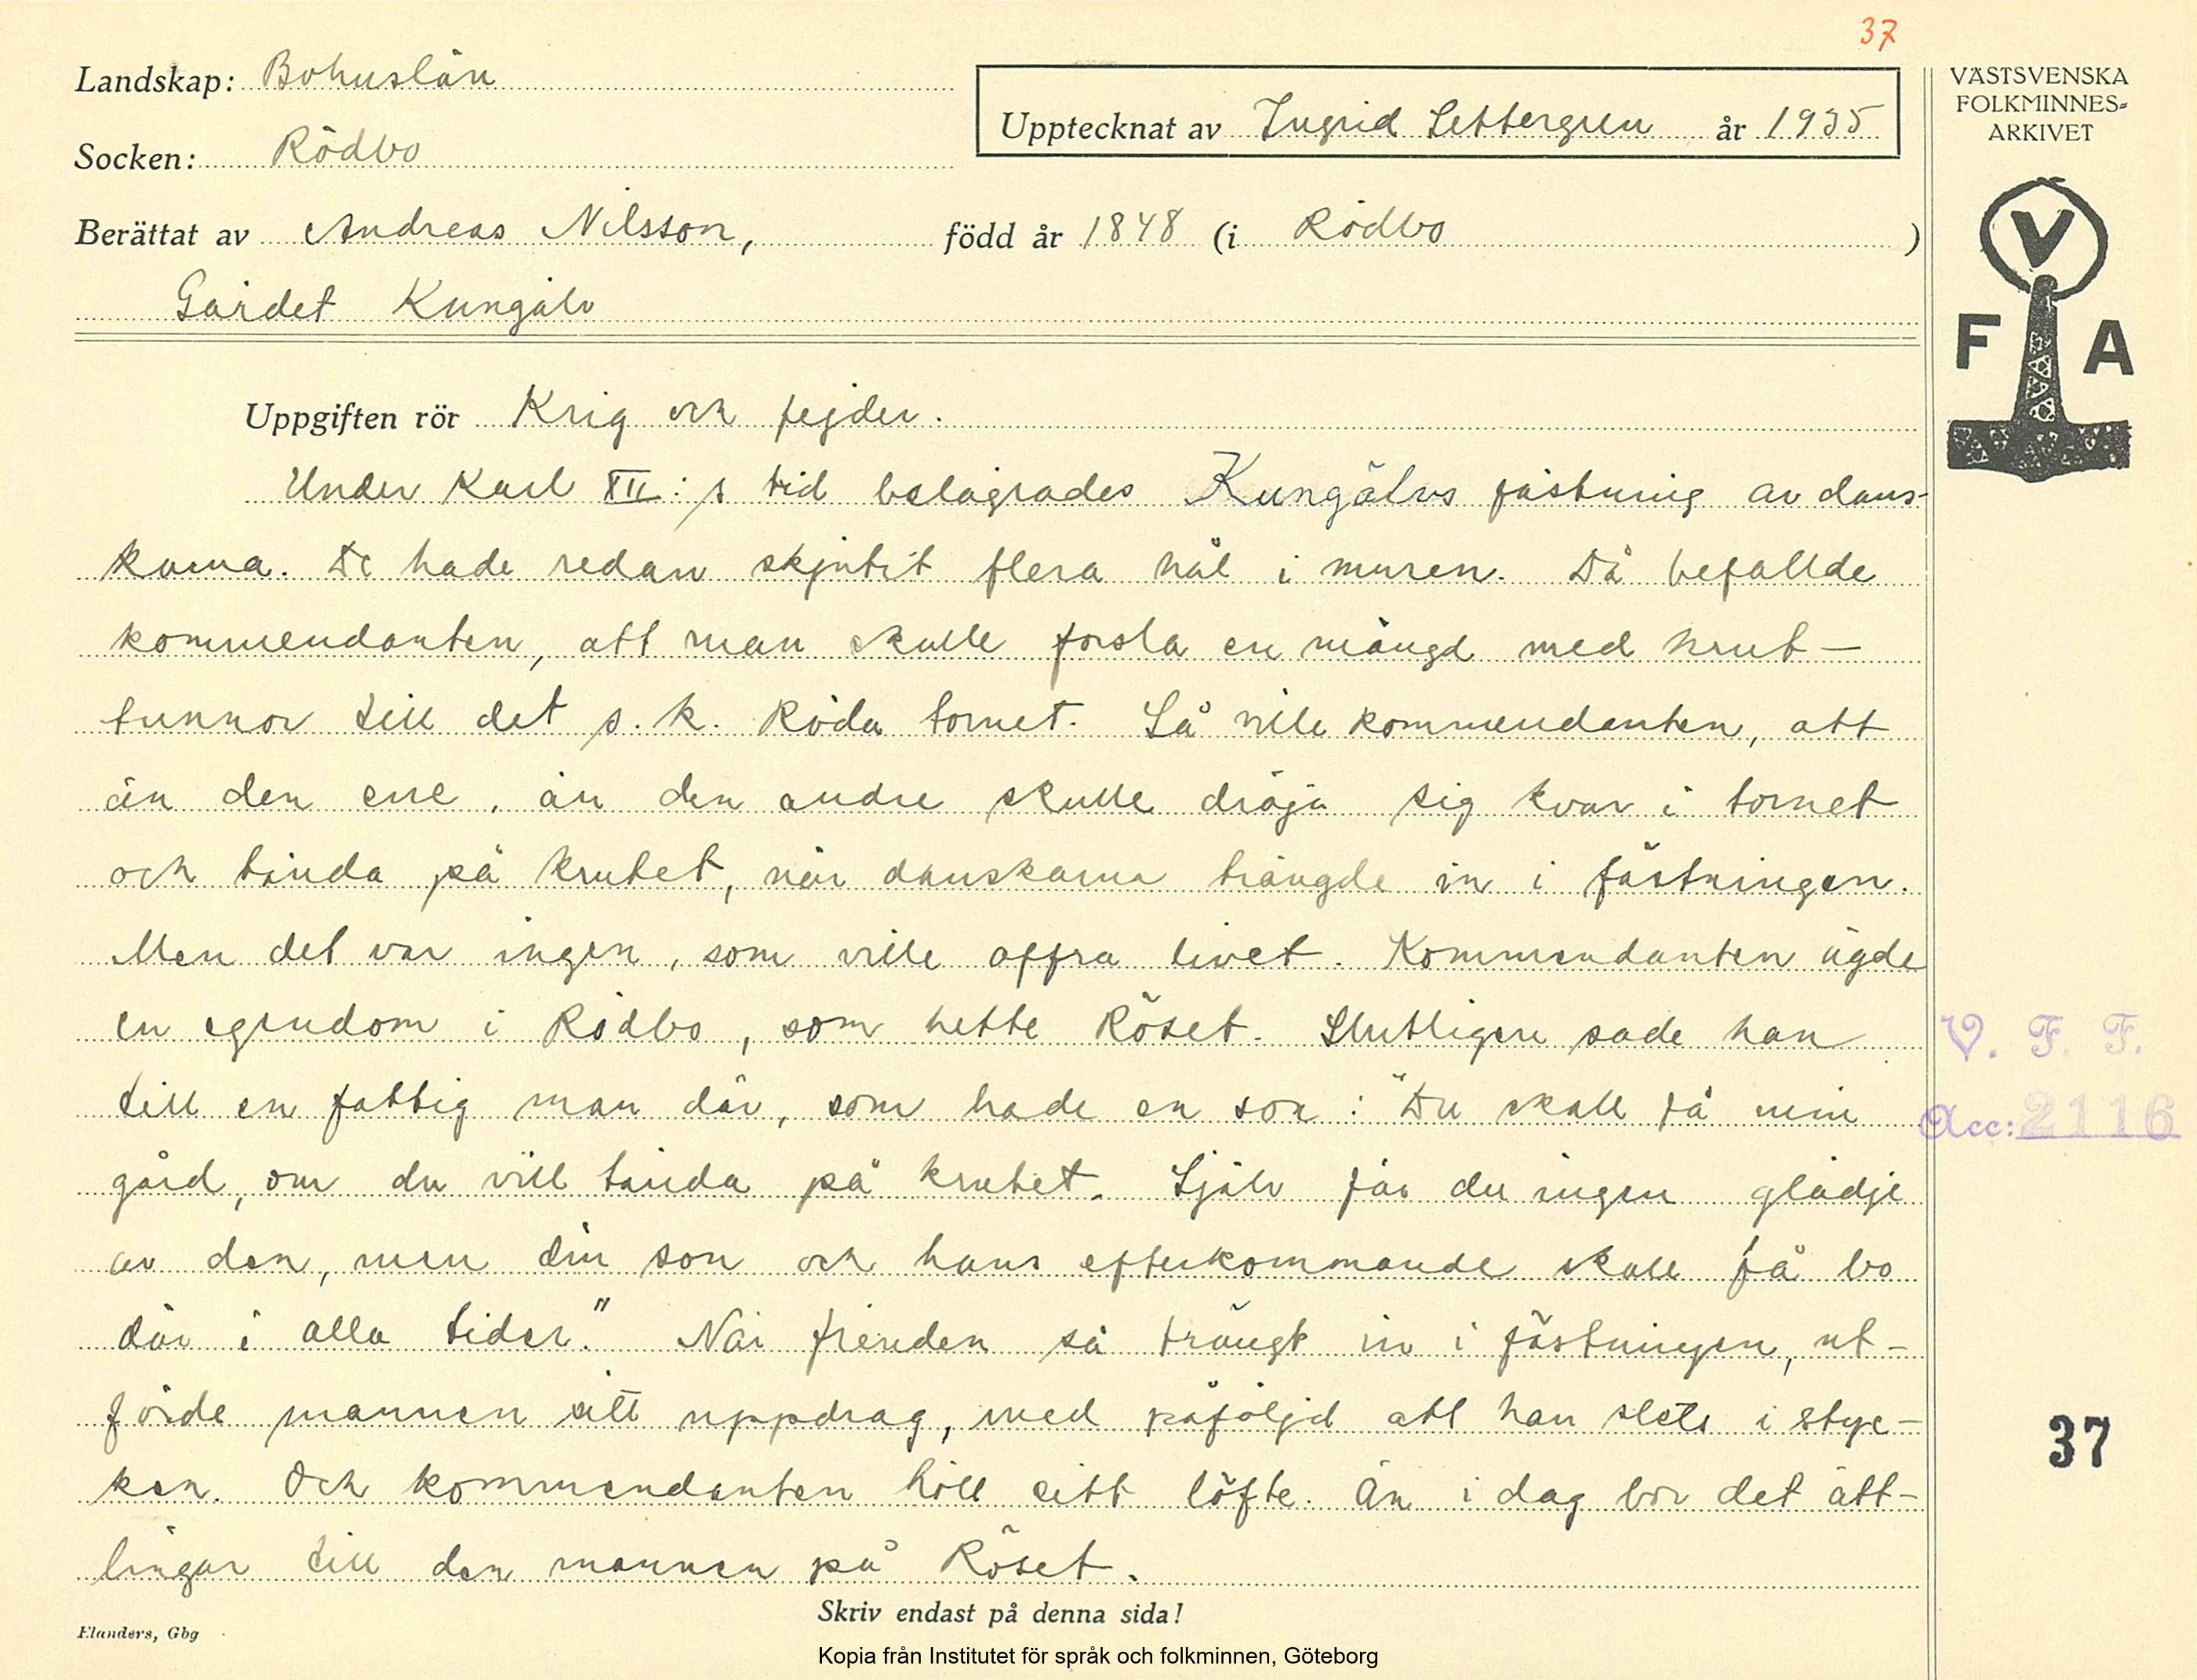 37
Landskap: Bohuslän
Socken: Rödbo
Upptecknat av Ingrid Settergren år 1935
Berättat av Andreas Nilsson, född år 1848 (i Rödbo )
Gärdet Kungälv
Uppgiften rör Krig och fejder.
Under Karl XII:s tid belägrades Kungälvs fästning av dans-
karna. De hade redan skjutit flera hål i muren. Då befallde
kommendanten, att man skulle forsla en mängd med krut-
tunnor till det s.k. Röda tornet. Så ville kommendanten, att
än den ene, än den andre skulle dröja sig kvar i tornet
och tända på krutet, när danskarna trängde in i fästningen.
Men det var ingen, som ville offra livet. Kommendanten ägde
en egendom i Rödbo, som hette Röset. Slutligen sade han
till en fattig man där, som hade en son: "Du skall få min
gård, om du vill tända på krutet. Själv får du ingen glädje
av den, men din son och hans efterkommande skall få bo
där i alla tider." När fienden så trängt in i fästningen, ut-
förde mannen sitt uppdrag, med påföljd att han slets i styc-
ken. Och kommendanten höll sitt löfte. Än i dag bor det ätt-
lingar till den mannen på Röset.
Skriv endast på denna sida!
Elanders, Gbg
Kopia från Institutet för språk och folkminnen, Göteborg
VÄSTSVENSKA
FOLKMINNES-
ARKIVET
V
F A
V. F. F.
Acc: 2116
37